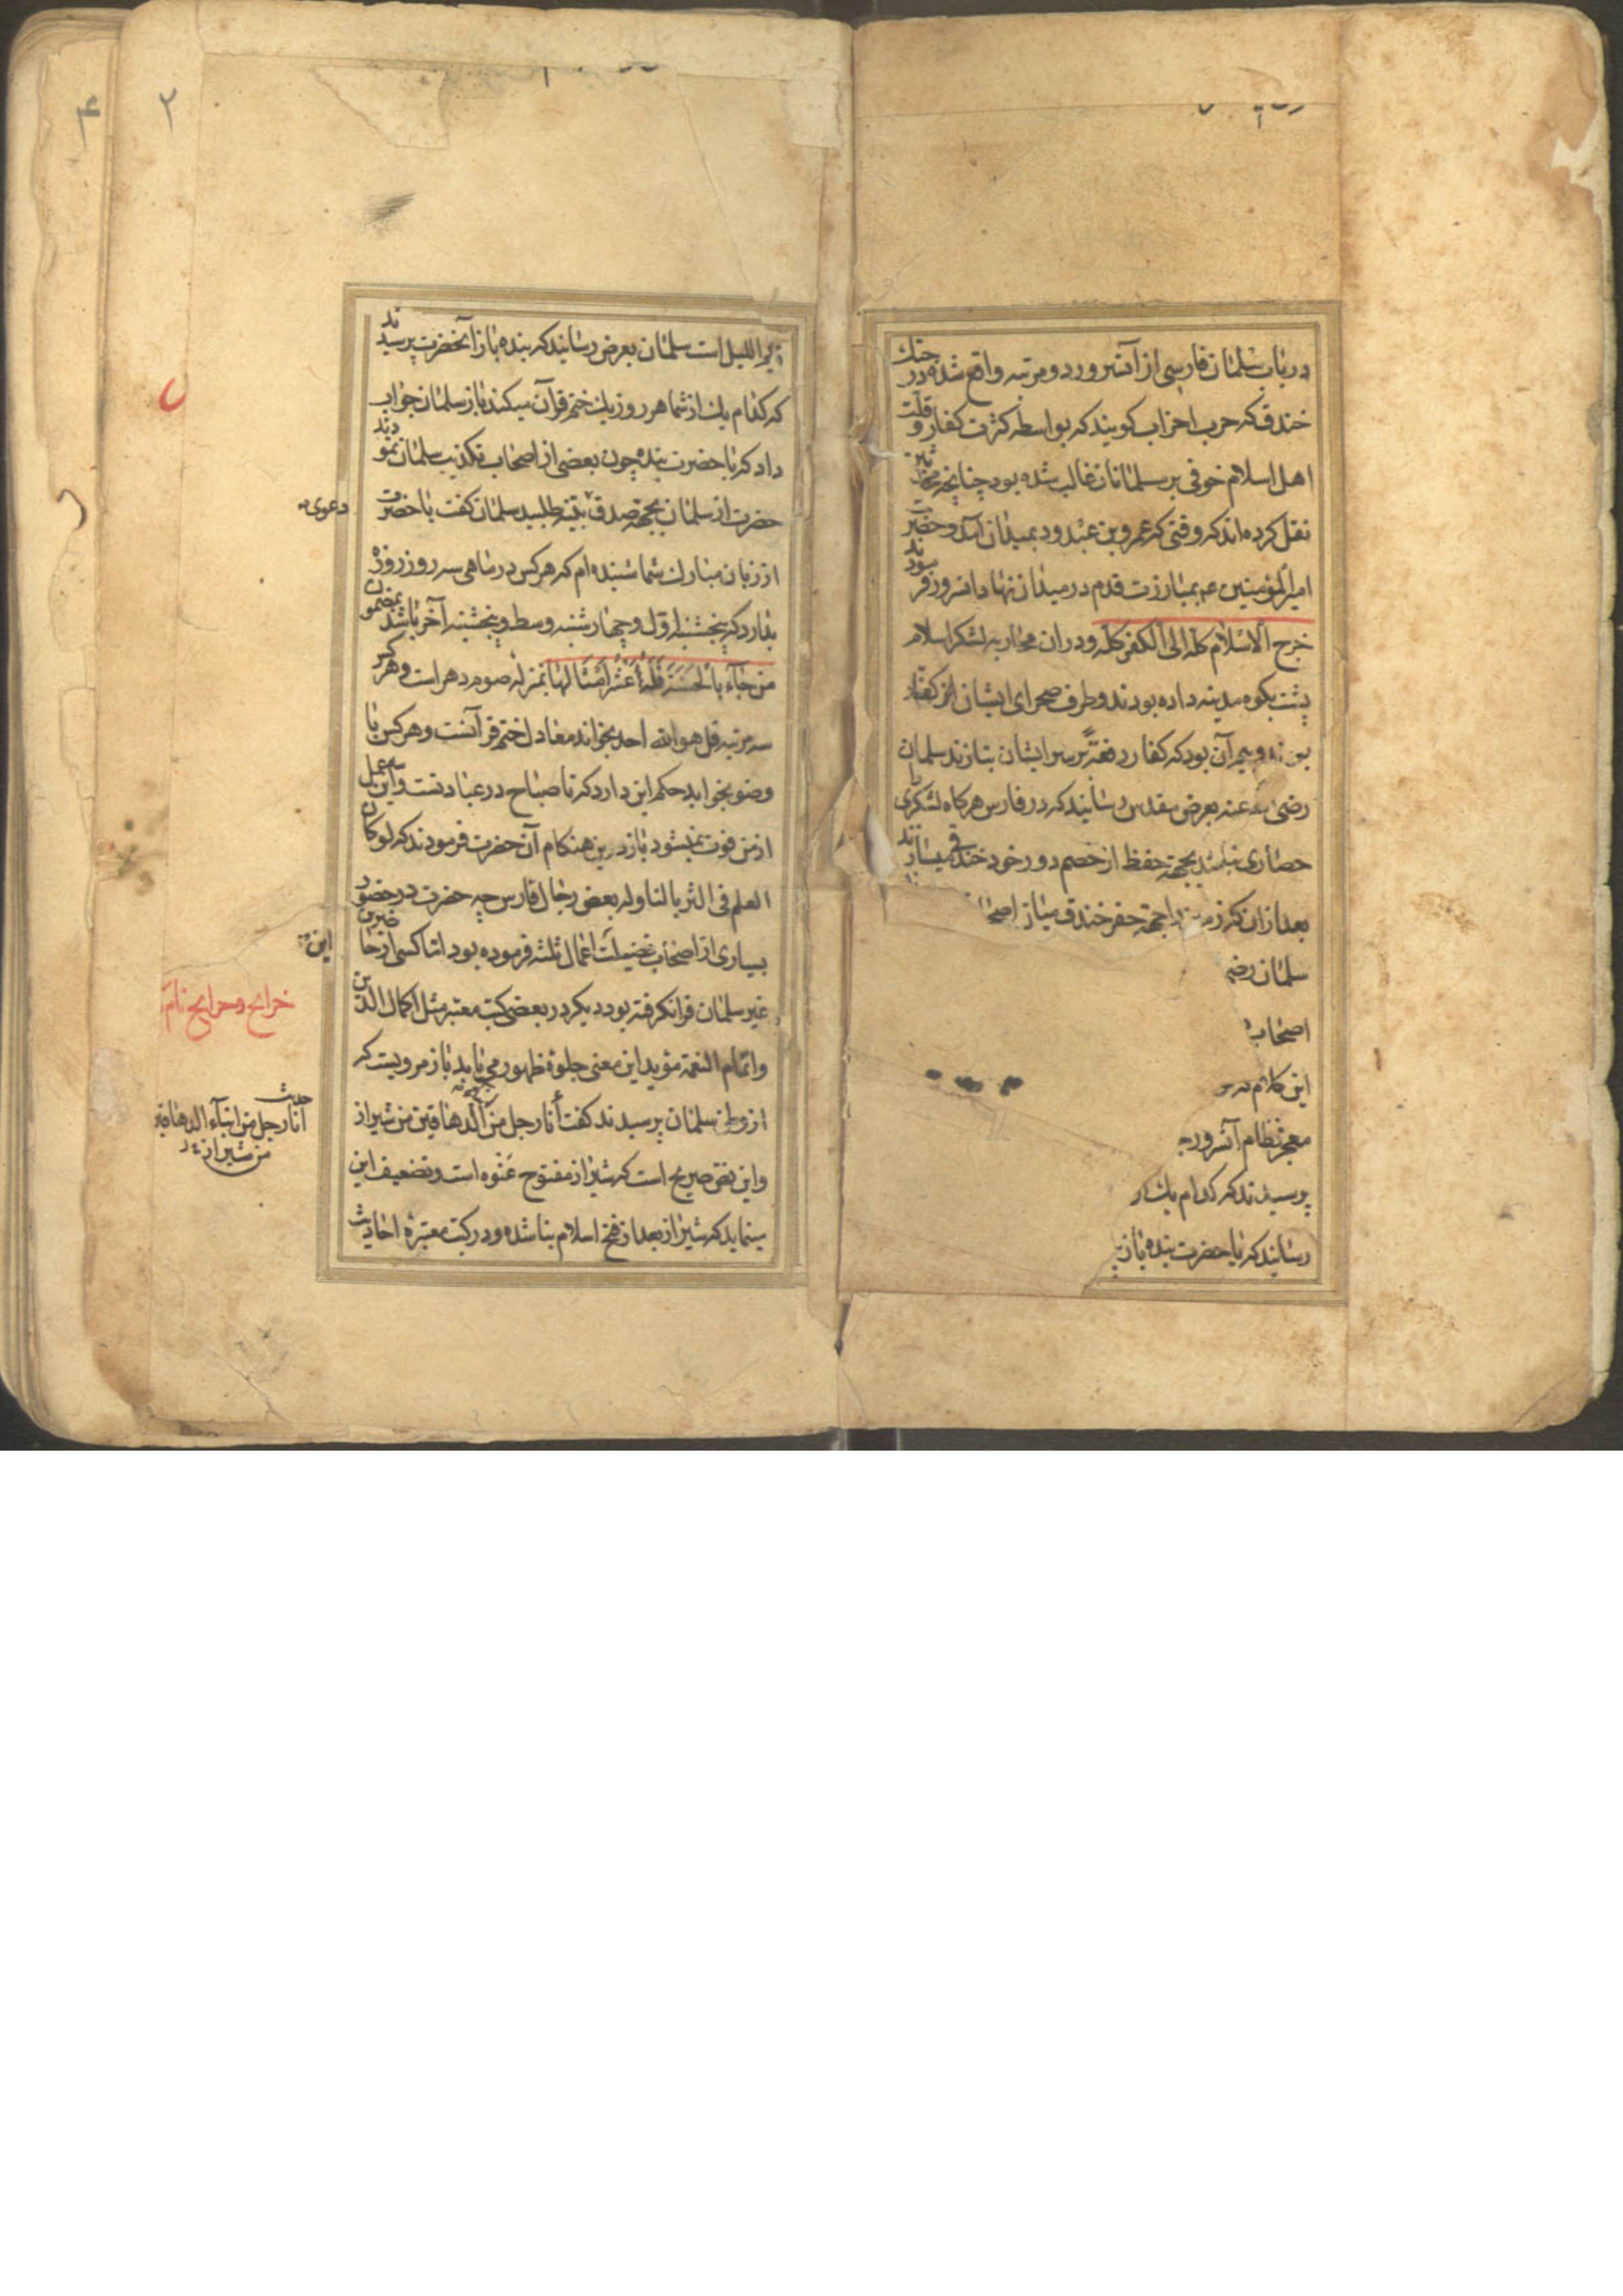 در باب سلمان فارسی از آنسرور دو مرتبه واقع شده در جنك
خندق که حرب احزاب کویند که بواسطه کثرت کفار و قلّت
اهل اسلام خوفی بر مسلمانان غالب شده بود چنانچه محدثین
نقل کرده‌اند که وقتی که عمرو بن عبدود بمیدان آمد و حضرت
امیرالمؤمنین عم بمبارزت قدم در میدان نهاد انسرور فرمودند
خرج الاسلام کله الی الکفر کله و دران محاربه لشکر اسلام
پشت بکوه مدینه داده بودند و طرف صحرای ایشان از کفار
بیم آن بود که کفار دفعة بر سر ایشان بتازند سلمان
رضی الله عنه بعرض مقدس رسانید که در فارس هرکاه لشکری را
حصاری نباشد بجهة حفظ از خصم دور خود خندقی میسازند
بعد از ان که زمین را جهة حفر خندق میان اصحاب
سلمان رضی
اصحاب
این کلام
معجز نظام آنسرور
پرسیدند که کدام یك از
رسانید که یا حضرت بنده باز
۲
۴
قیم اللیل است سلمان بعرض رسانید که بنده باز آنحضرت پرسیدند
که کدام یك از شما هر روز یك ختم قرآن میکند باز سلمان جواب
داد که یا حضرت بنده چون بعضی از اصحاب تکذیب سلمان نمودند
حضرت از سلمان بجهة صدق بینه طلبید سلمان کفت یا حضرت
دعوی
از زبان مبارك شما شنیده‌ام که هر کس در ماهی سه روز روزه
بدارد که پنجشنبه اول و چهارشنبه وسط و پنجشنبه آخر باشد بمضمون
من جآء بالحسنة فله عشر امثالها بمنزله صوم دهر است و هر کس
سه مرتبه قل هو الله احد بخواند معادل ختم قرآنست و هر کس با
وضو بخوابد حکم این دارد که تا صباح در عبادتست و این سه عمل
از من فوت نمیشود باز درین هنکام آن حضرت فرمودند که لو کان
العلم فی الثریا لناوله بعض رجال فارس چه حضرت در حضور
بسیاری از اصحاب فضیلت اعمال ثلثه فرموده بود اما کسی از حاضرین
این
غیر سلمان فرا نکرفته بود دیکر در بعضی کتب معتبر مثل اکمال الدین
خرایج و جرایح نام
واتمام النعمة مؤید این معنی جلوهٔ ظهور می‌یابد باز مرویست که
از وطن سلمان پرسیدند کفت أنا رجل من الدهاقین من شیراز
حدیث
انا رجل من ابنآء الدهاقین
من شیراز
و این نص صریح است که شیراز مفتوح عنوه است و تضعیف این
مینماید که شیراز بعد از فتح اسلام بنا شده و در کتب معتبره احادیث